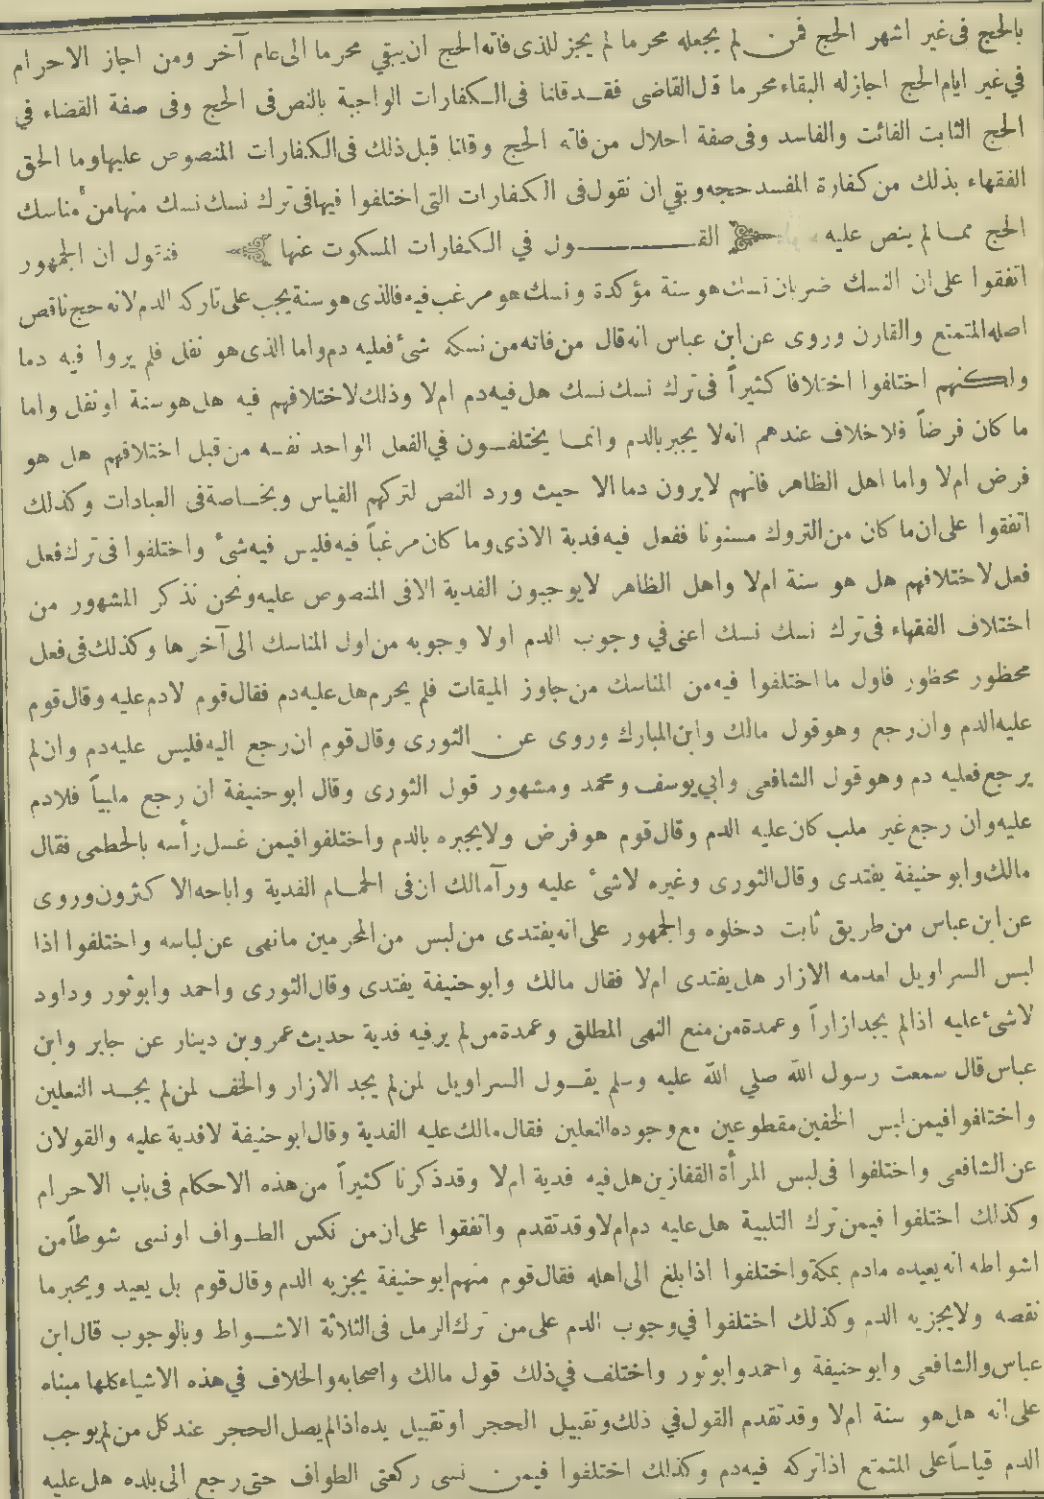 بالحج فى غير اشهر الحج فمن لم يجعله محرما لم يجز للذى فاته الحج ان يبقي محرما الى عام آخر ومن اجاز الاحرام
في غير ايام الحج اجاز له البقاء محرما قال القاضى فقد قلنا فى الكفارات الواجبة بالنص فى الحج وفى صفة القضاء في
الحج الثابت الفائت والفاسد وفى صفة احلال من فاته الحج وقلنا قبل ذلك فى الكفارات المنصوص عليها وما الحق
الفقهاء بذلك من كفارة المفسد حجه وبقي ان نقول فى الكفارات التى اختلفوا فيها فى ترك نسك نسك منها من مناسك
الحج مما لم ينص عليه القول في الكفارات المسكوت عنها فنقول ان الجمهور
اتفقوا على ان النسك ضربان نسك هو سنة مؤكدة ونسك هو مرغب فيه فالذى هو سنة يجب على تاركه الدم لانه حج ناقص
اصله المتمتع والقارن وروى عن ابن عباس انه قال من فاته من نسكه شئ فعليه دم واما الذى هو نفل فلم يروا فيه دما
ولكنهم اختلفوا اختلافا كثيراً فى ترك نسك نسك هل فيه دم ام لا وذلك لاختلافهم فيه هل هو سنة او نفل واما
ما كان فرضاً فلا خلاف عندهم انه لا يجبر بالدم وانما يختلفون في الفعل الواحد نفسه من قبل اختلافهم هل هو
فرض ام لا واما اهل الظاهر فانهم لا يرون دما الا حيث ورد النص لتركهم القياس وبخاصة فى العبادات وكذلك
اتفقوا على ان ما كان من التروك مسنونا ففعل فيه فدية الاذى وما كان مرغباً فيه فليس فيه شئ واختلفوا فى ترك فعل
فعل لاختلافهم هل هو سنة ام لا واهل الظاهر لا يوجبون الفدية الا فى المنصوص عليه ونحن نذكر المشهور من
اختلاف الفقهاء فى ترك نسك نسك اعنى في وجوب الدم او لا وجوبه من اول المناسك الى آخرها وكذلك فى فعل
محظور محظور فاول ما اختلفوا فيه من المناسك من جاوز الميقات فلم يحرم هل عليه دم فقال قوم لا دم عليه وقال قوم
عليه الدم وان رجع وهو قول مالك وابن المبارك وروى عن الثورى وقال قوم ان رجع اليه فليس عليه دم وان لم
يرجع فعليه دم وهو قول الشافعى وابي يوسف ومحمد ومشهور قول الثورى وقال ابو حنيفة ان رجع ملبياً فلا دم
عليه وان رجع غير ملب كان عليه الدم وقال قوم هو فرض ولا يجبره بالدم واختلفوا فيمن غسل رأسه بالخطمى فقال
مالك وابو حنيفة يفتدى وقال الثورى وغيره لا شئ عليه ورآ مالك ان فى الحمام الفدية واباحه الاكثرون وروى
عن ابن عباس من طريق ثابت دخلوه والجمهور على انه يفتدى من لبس من المحرمين ما نهى عن لباسه واختلفوا اذا
لبس السراويل لعدمه الازار هل يفتدى ام لا فقال مالك وابو حنيفة يفتدى وقال الثورى واحمد وابو ثور وداود
لا شئ عليه اذا لم يجد ازاراً وعمدة من منع النهى المطلق وعمدة من لم ير فيه فدية حديث عمرو بن دينار عن جابر وابن
عباس قال سمعت رسول الله صلي الله عليه وسلم يقول السراويل لمن لم يجد الازار والخف لمن لم يجد النعلين
واختلفوا فيمن لبس الخفين مقطوعين مع وجوده النعلين فقال مالك عليه الفدية وقال ابو حنيفة لا فدية عليه والقولان
عن الشافعى واختلفوا فى لبس المرأة القفازين هل فيه فدية ام لا وقد ذكرنا كثيراً من هذه الاحكام فى باب الاحرام
وكذلك اختلفوا فيمن ترك التلبية هل عليه دم ام لا وقد تقدم واتفقوا على ان من نكس الطواف او نسى شوطاً من
اشواطه انه يعيده ما دام بمكة واختلفوا اذا بلغ الى اهله فقال قوم منهم ابو حنيفة يجزيه الدم وقال قوم بل يعيد ويجبر ما
نقصه ولا يجزيه الدم وكذلك اختلفوا في وجوب الدم على من ترك الرمل فى الثلاثة الاشواط وبالوجوب قال ابن
عباس والشافعى وابو حنيفة واحمد وابو ثور واختلف في ذلك قول مالك واصحابه والخلاف في هذه الاشياء كلها مبناه
على انه هل هو سنة ام لا وقد تقدم القول في ذلك وتقبيل الحجر او تقبيل يده اذا لم يصل الحجر عند كل من لم يوجب
الدم قياساً على المتمتع اذا تركه فيه دم وكذلك اختلفوا فيمن نسى ركعتى الطواف حتى رجع الى بلده هل عليه